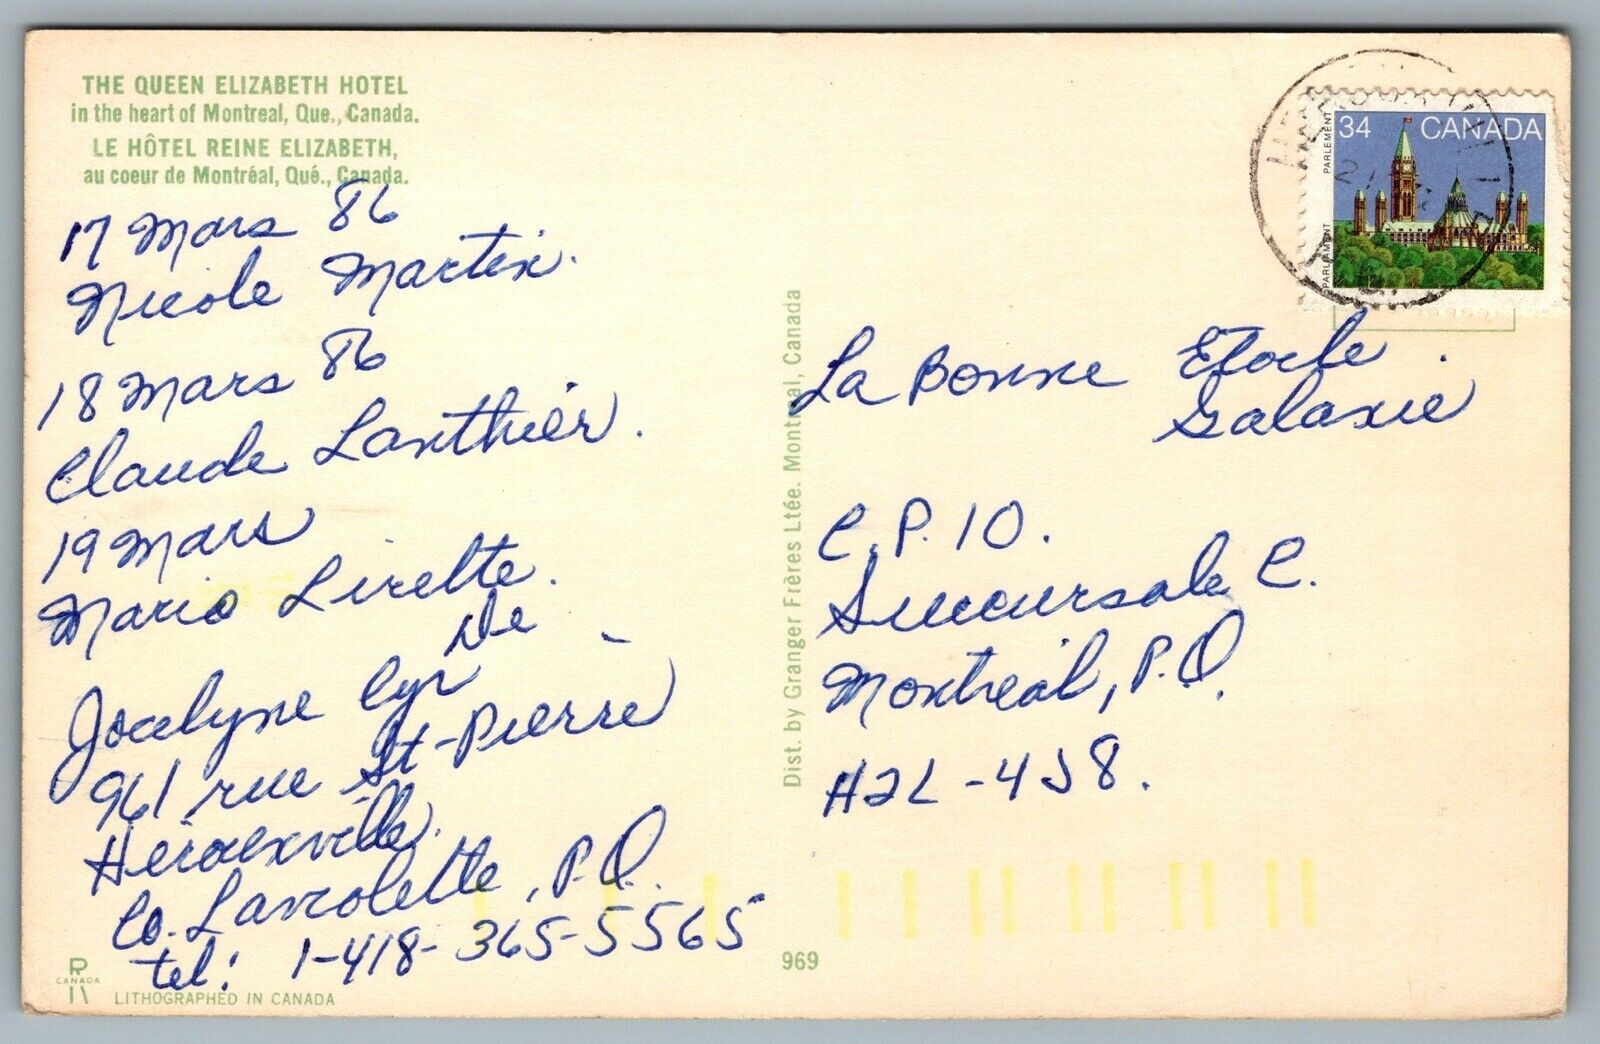 THE QUEEN ELIZABETH HOTEL
in the heart of Montreal, Que., Canada.
LE HÔTEL REINE ELIZABETH,
au coeur de Montréal, Qué., Canada.
17 Mars 86
Nicole Martin.
18 Mars 86
Claude Lanthier.
19 Mars
Mario Lirette.
De
Jocelyne Cyr
961 rue St-Pierre
Hérouxville.
Co. Laviolette, P.Q.
tel: 1-418-365-5565
R
CANADA
LITHOGRAPHED IN CANADA
Dist. by Granger Frères Ltée. Montreal, Canada
969
34 CANADA
PARLIAMENT PARLEMENT
La Bonne Etoile
Galaxie
C.P. 10.
Succursale C.
Montréal, P.Q.
H2L-4J8.